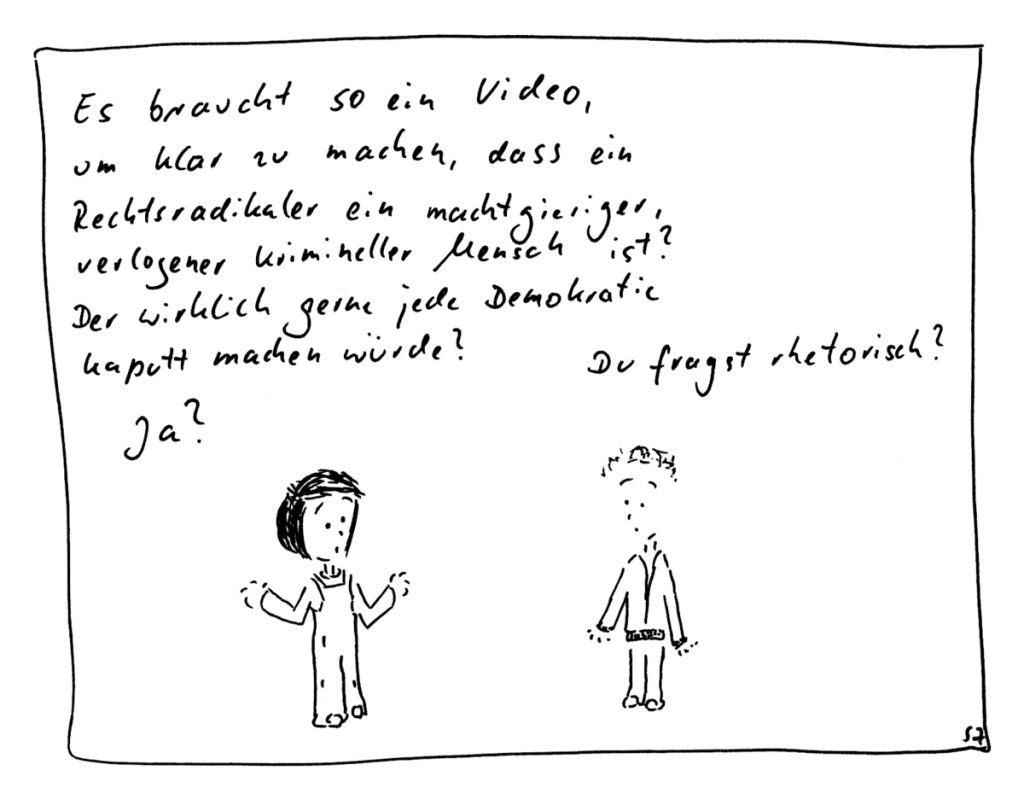 Es braucht so ein Video,
um klar zu machen, dass ein
Rechtsradikaler ein machtgieriger,
verlogener krimineller Mensch ist?
Der wirklich gerne jede Demokratie
kaputt machen würde?
Du fragst rhetorisch?
Ja?